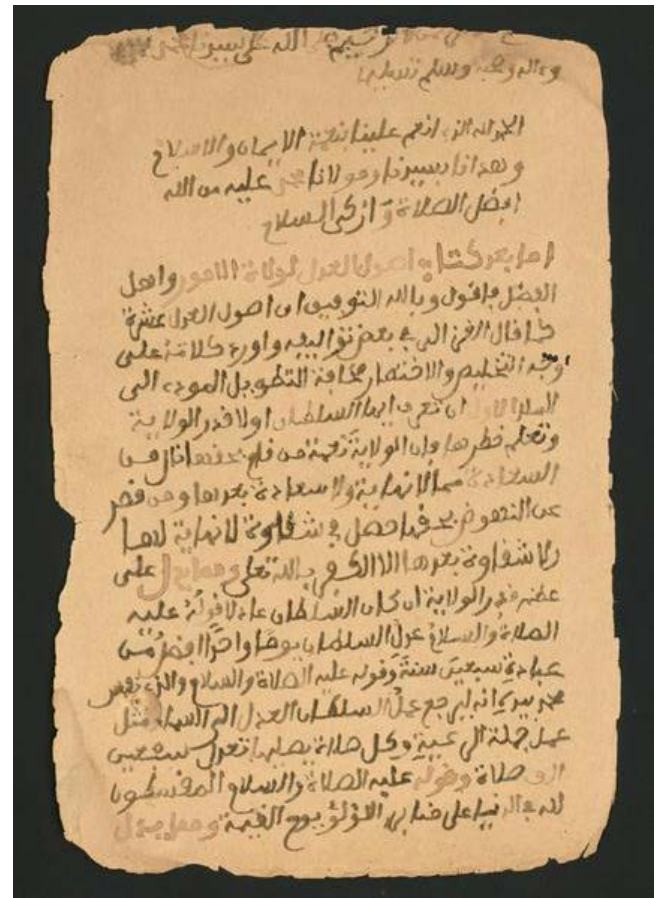 الرحيم صلى الله على سيدنا محمد
وءاله وصحبه وسلم تسليما
الحمد لله الذي انعم علينا بنعمة الايمان والاسلام
وهدانا بسيدنا ومولانا محمد عليه من الله
افضل الصلاة وازكى السلام
اما بعد كتاب اصول العدل لولاة الامور واهل
الفضل فاقول وبالله التوفيق ان اصول العدل عشرة
كما قال الغزالي في بعض تواليفه واورد كلامه على
وجه التلخيص والاختصار مخافة التطويل المودي الى
الاول ان تعرف ايها السلطان اولا قدر الولاية
وتعلم خطرها وان الولاية نعمة من قام بحقها نال من
السعادة ما لا نهاية ولا سعادة بعدها ومن قصر
عن النهوض بحقها حصل في شقاوة لا نهاية لها
ولا شقاوة بعدها الا الكفر بالله تعلى ومما يدل على
عظم قدر الولاية ان كان السلطان عادلا قوله عليه
الصلاة والسلام عدل السلطان يوما واحدا افضل من
عبادة سبعين سنة وقوله عليه الصلاة والسلام والذي نفس
محمد بيده انه ليرجع عمل السلطان العدل الى السماء مثل
عمل جملة الرعية وكل صلاة يصليها تعدل سبعين
الف صلاة وقوله عليه الصلاة والسلام المقسطون
لله في الدنيا على منابر اللؤلؤ يوم القيمة ومما يدل